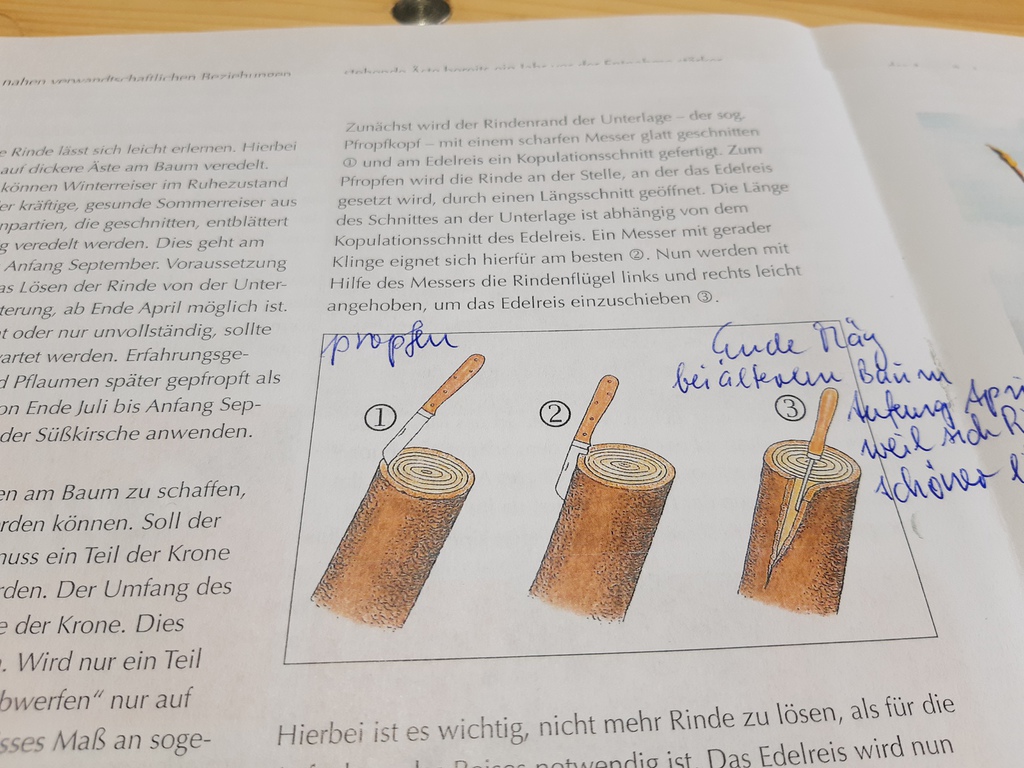 nahen verwandtschaftlichen Beziehungen
e Rinde lässt sich leicht erlernen. Hierbei
auf dickere Äste am Baum veredelt.
können Winterreiser im Ruhezustand
er kräftige, gesunde Sommerreiser aus
npartien, die geschnitten, entblättert
g veredelt werden. Dies geht am
Anfang September. Voraussetzung
as Lösen der Rinde von der Unter-
terung, ab Ende April möglich ist.
t oder nur unvollständig, sollte
artet werden. Erfahrungsge-
d Pflaumen später gepfropft als
on Ende Juli bis Anfang Sep-
der Süßkirsche anwenden.
en am Baum zu schaffen,
erden können. Soll der
nuss ein Teil der Krone
rden. Der Umfang des
e der Krone. Dies
. Wird nur ein Teil
bwerfen“ nur auf
sses Maß an soge-
Zunächst wird der Rindenrand der Unterlage – der sog.
Pfropfkopf – mit einem scharfen Messer glatt geschnitten
① und am Edelreis ein Kopulationsschnitt gefertigt. Zum
Pfropfen wird die Rinde an der Stelle, an der das Edelreis
gesetzt wird, durch einen Längsschnitt geöffnet. Die Länge
des Schnittes an der Unterlage ist abhängig von dem
Kopulationsschnitt des Edelreis. Ein Messer mit gerader
Klinge eignet sich hierfür am besten ②. Nun werden mit
Hilfe des Messers die Rindenflügel links und rechts leicht
angehoben, um das Edelreis einzuschieben ③.
propfen
Ende May
bei älterem Baum
Anfang Apri
weil sich Ri
schöner l
① ② ③
Hierbei ist es wichtig, nicht mehr Rinde zu lösen, als für die
notwendig ist. Das Edelreis wird nun